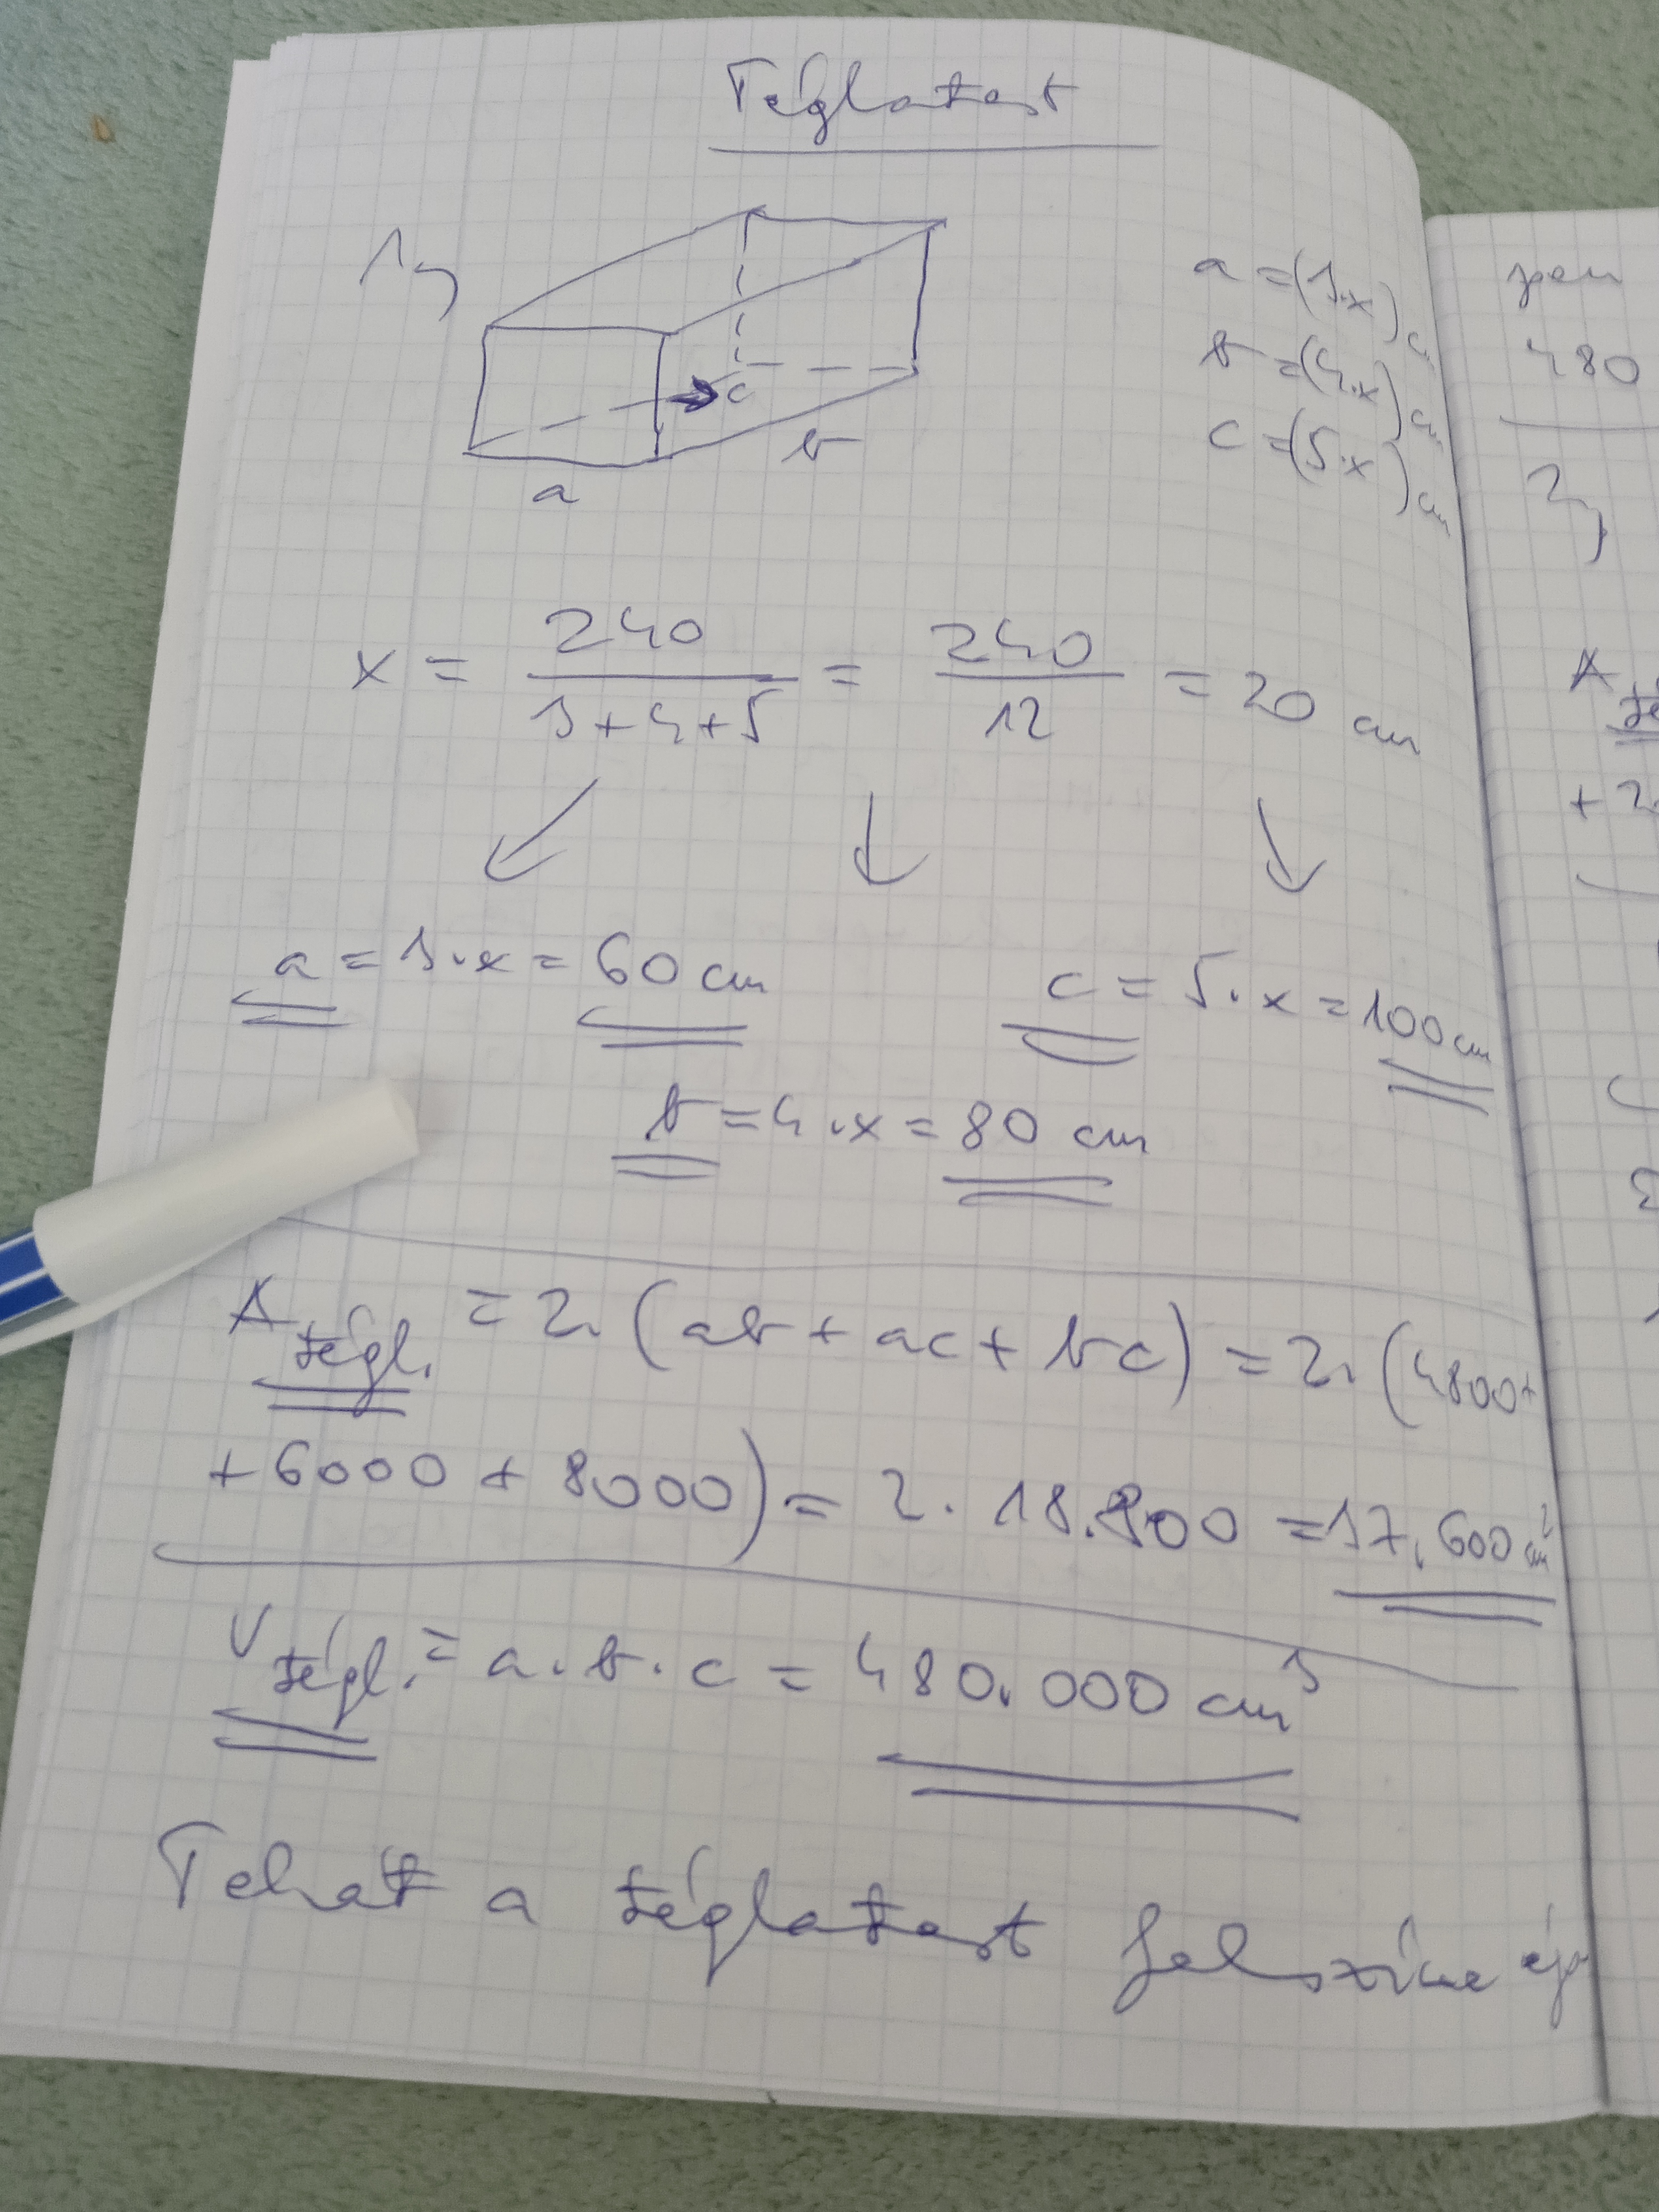 Téglatest
1,
a = (3·x) cm
b = (4·x) cm
c = (5·x) cm
c
b
a
x = 240 / 3+4+5 = 240 / 12 = 20 cm
a = 3·x = 60 cm
c = 5·x = 100 cm
b = 4·x = 80 cm
A tégl. = 2·(ab + ac + bc) = 2·(4800+
+ 6000 + 8000) = 2·18.800 = 37.600 cm²
V tégl. = a·b·c = 480.000 cm³
Tehát a téglatest felszíne ép
480
2,
A té
+ 2